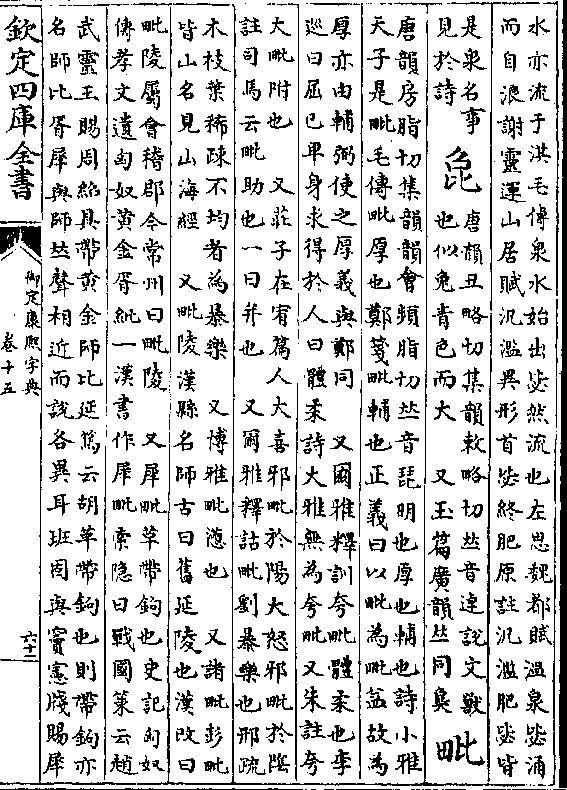 水亦流于淇毛傳泉水始出毖然流也左思魏都賦溫泉毖涌
而自浪謝靈運山居賦氿濫異形首毖終肥原註氿濫肥毖皆
是泉名事
見於詩
㲋
唐韻丑略切集韻敕略切𠀤音逴說文獸
也似兔青色而大 又玉篇廣韻𠀤同㚟
毗
唐韻房脂切集韻韻會頻脂切𠀤音琵明也厚也輔也詩小雅
天子是毗毛傳毗厚也鄭箋毗輔也正義曰以毗為毗益故為
厚亦由輔弼使之厚義與鄭同 又爾雅釋訓夸毗體柔也李
巡曰屈已卑身求得於人曰體柔詩大雅無為夸毗又朱註夸
大毗附也 又莊子在宥篇人大喜邪毗於陽大怒邪毗於陰
註司馬云毗助也一曰幷也 又爾雅釋詁毗劉暴樂也邢疏
木枝葉稀疎不均者為暴樂 又博雅毗懣也 又諸毗彭毗
皆山名見山海經 又毗陵漢縣名師古曰舊延陵也漢改曰
毗陵屬會稽郡今常州曰毗陵 又犀毗革帶鉤也史記匈奴
傳孝文遺匈奴黃金胥紕一漢書作犀毗索隱曰戰國策云趙
武靈王賜周紹具帶黃金師比延篤云胡革帶鉤也則帶鉤亦
名師比胥犀與師𠀤聲相近而說各異耳班固與竇憲牋賜犀
欽定四庫全書
御定康熙字典
卷十五
六十二